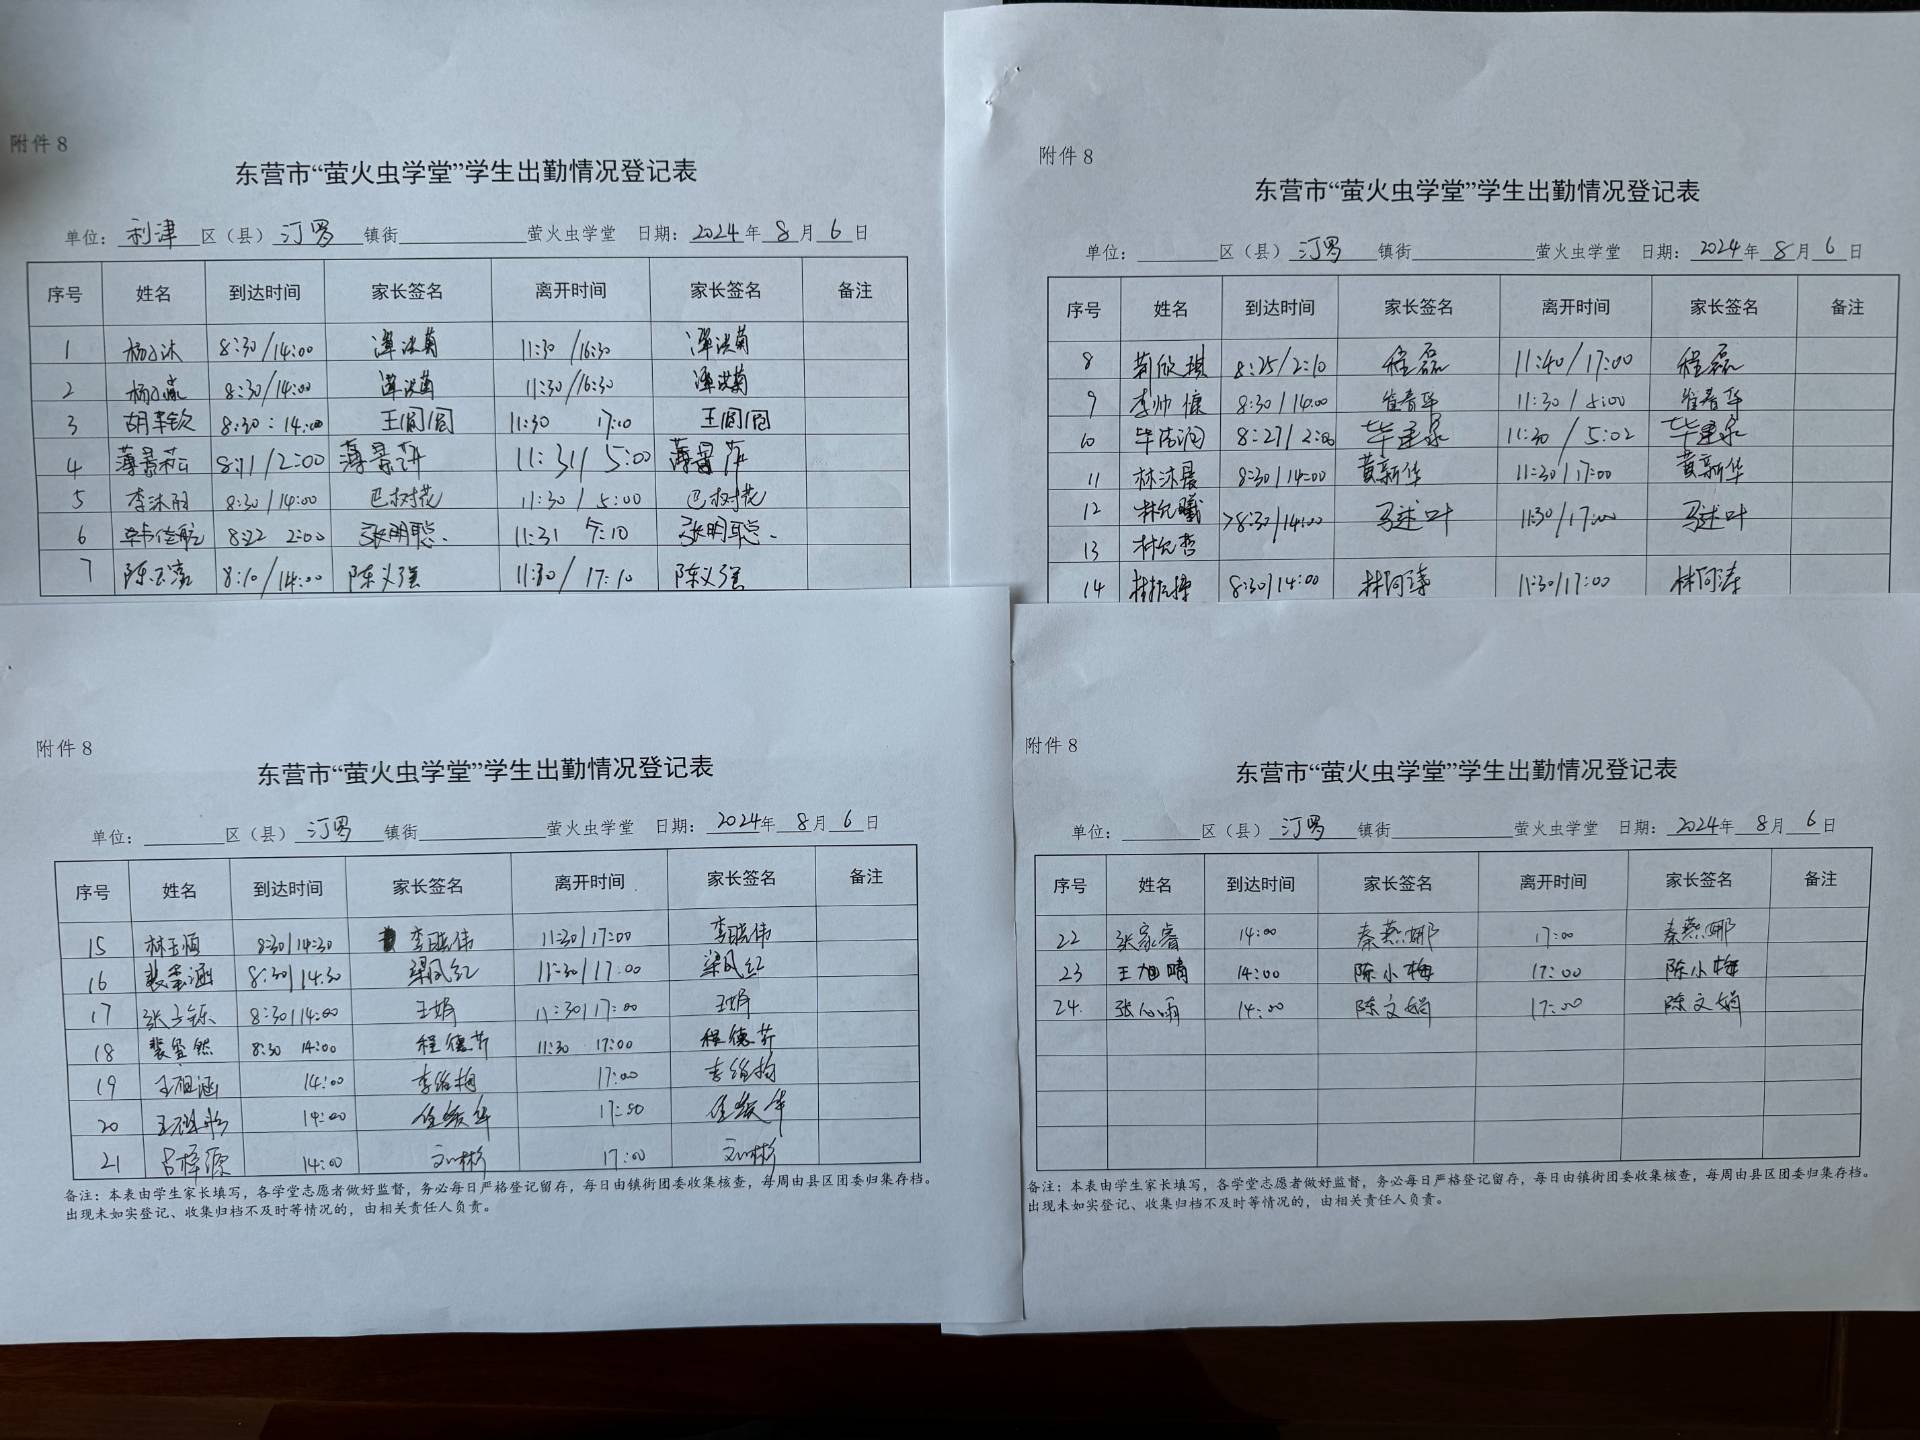 附件 8
东营市“萤火虫学堂”学生出勤情况登记表
单位： 利津 区（县） 汀罗 镇街 萤火虫学堂 日期：2024 年 8 月 6 日
序号 姓名 到达时间 家长签名 离开时间 家长签名 备注
1 8:30/14:00 11:30/16:30
2 8:30/14:00 11:30/16:30
3 8:30:14:00 王圆圆 11:30 17:00 王圆圆
4 /2:00 11:31/5:00
5 8:30/14:00 巴树花 11:30/5:00 巴树花
6 8:22 2:00 张明聪 11:31 5:10 张明聪
7 8:10/14:00 陈义强 11:30/17:10 陈义强
附件 8
东营市“萤火虫学堂”学生出勤情况登记表
单位： 区（县） 汀罗 镇街 萤火虫学堂 日期：2024 年 8 月 6 日
序号 姓名 到达时间 家长签名 离开时间 家长签名 备注
8 8:25/2:10 程磊 11:40/17:00 程磊
9 李帅慷 8:30/14:00 崔春华 11:30/5:00 崔春华
10 8:27/2:00 11:30/5:02
11 林沐晨 8:30/14:00 黄新华 11:30/17:00 黄新华
12 林允曦 8:30/14:00 马述叶 11:30/17:00 马述叶
13 林允哲
14 8:30/14:00 11:30/17:00
附件 8
东营市“萤火虫学堂”学生出勤情况登记表
单位： 区（县） 汀罗 镇街 萤火虫学堂 日期：2024年 8 月 6 日
序号 姓名 到达时间 家长签名 离开时间 家长签名 备注
15 林玉恒 8:30/14:30 11:30/17:00
16 8:30/14:30 梁凤红 11:30/17:00 梁凤红
17 8:30/14:00 王娟 11:30/17:00 王娟
18 8:30 14:00 程德芹 11:30 17:00 程德芹
19 14:00 17:00
20 14:00
21 14:00 刘彬彬 17:00 刘彬彬
备注：本表由学生家长填写，各学堂志愿者做好监督，务必每日严格登记留存，每日由镇街团委收集核查，每周由县区团委归集存档。
出现未如实登记、收集归档不及时等情况的，由相关责任人负责。
附件 8
东营市“萤火虫学堂”学生出勤情况登记表
单位： 区（县） 汀罗 镇街 萤火虫学堂 日期：2024 年 8 月 6 日
序号 姓名 到达时间 家长签名 离开时间 家长签名 备注
22 张家睿 14:00 秦燕娜 17:00 秦燕娜
23 王旭晴 14:00 陈小梅 17:00 陈小梅
24. 张心雨 14:00 陈文娟 17:00 陈文娟
备注：本表由学生家长填写，各学堂志愿者做好监督，务必每日严格登记留存，每日由镇街团委收集核查，每周由县区团委归集存档。
出现未如实登记、收集归档不及时等情况的，由相关责任人负责。